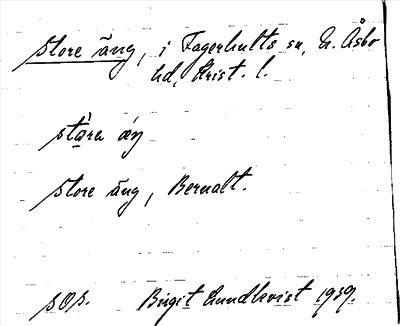 store äng, i Fagerhults sn, N. Åsbo
hd, Krist. l.
ståra äŋ
store äng, Bernalt.
sOs. Birgit Lundkvist 1939.